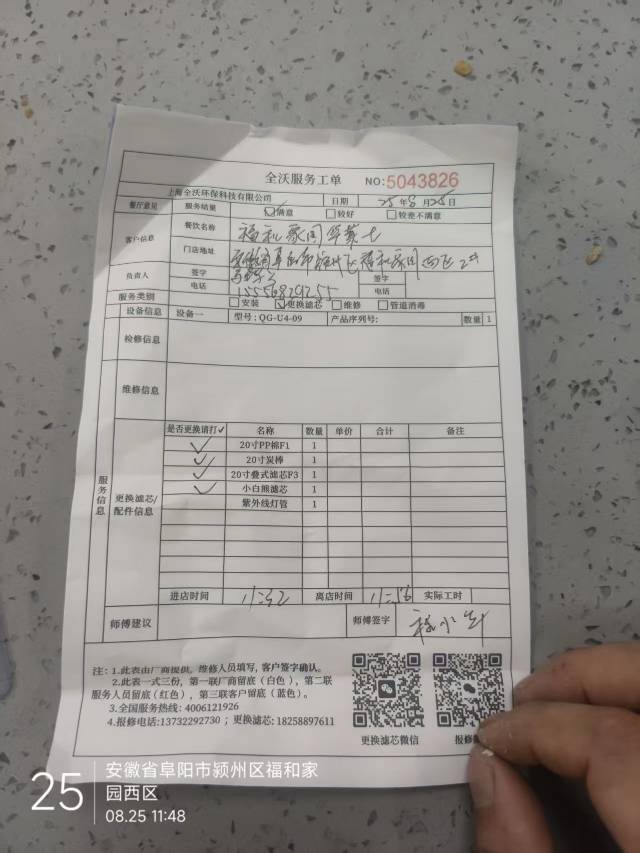 全沃服务工单 NO:5043826
上海全沃环保科技有限公司 日期 25年8月25日
餐厅意见 服务结果 ☑满意 □较好 □较差不满意
客户信息 餐饮名称 福和家园华莱士
门店地址 安徽省阜阳市颍州区福和家园西区
负责人 签字 签字
电话 15556829255 电话
服务类别 □安装 ☑更换滤芯 □维修 □管道消毒
设备信息 设备一 型号:QG-U4-09 产品序列号: 数量 1
检修信息
维修信息
服务信息
更换滤芯/配件信息
是否更换请打✓ 名称 数量 单价 合计 备注
✓ 20寸PP棉F1 1
✓ 20寸炭棒 1
✓ 20寸叠式滤芯F3 1
✓ 小白熊滤芯 1
紫外线灯管 1
进店时间 11:42 离店时间 11:56 实际工时
师傅建议 师傅签字
注:1.此表由厂商提供,维修人员填写,客户签字确认。
2.此表一式三份,第一联厂商留底(白色),第二联
服务人员留底(红色),第三联客户留底(蓝色)。
3.全国服务热线:4006121926
4.报修电话:13732292730;更换滤芯:18258897611
更换滤芯微信 报修
25 安徽省阜阳市颍州区福和家
园西区
08.25 11:48